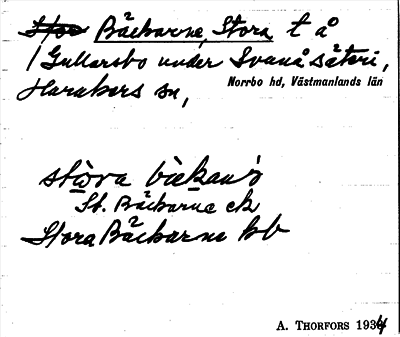 Bäckarne, Stora t å
/ Gullarsbo under Svanå säteri,
Haraker sn,
Norrbo hd, Västmanlands län
St. Bäckarne ek
Stora Bäckarne kb
A. THORFORS 1934